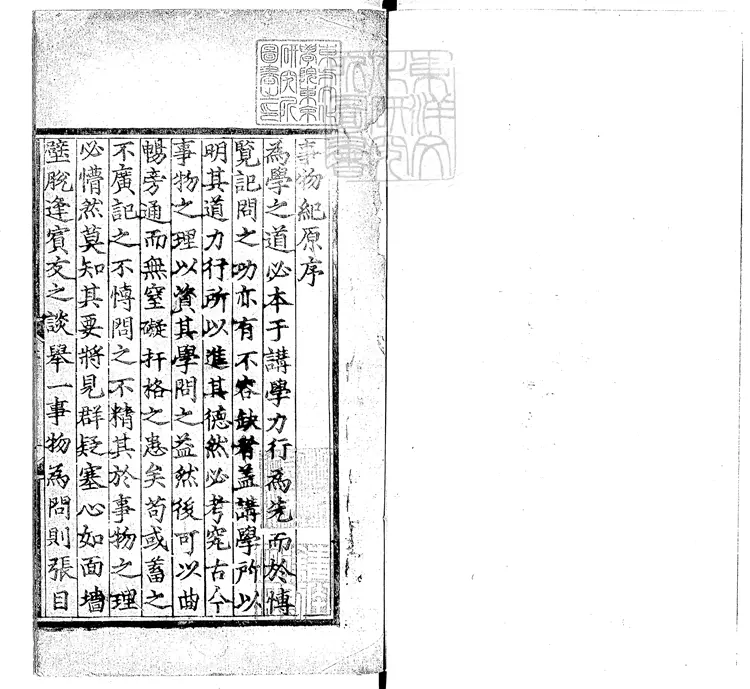 事物紀原序
為學之道必本于講學力行為先而於博
覽記問之功亦有不容缺者蓋講學所以
明其道力行所以進其德然必考究古今
事物之理以資其學問之益然後可以曲
暢旁通而無窒礙扞格之患矣苟或蓄之
不廣記之不慱問之不精其於事物之理
必懵然莫知其要將見群疑塞心如面墻
壁脫逢賓交之談舉一事物為問則張目
東方文化
學院東京
研究所
圖書之印